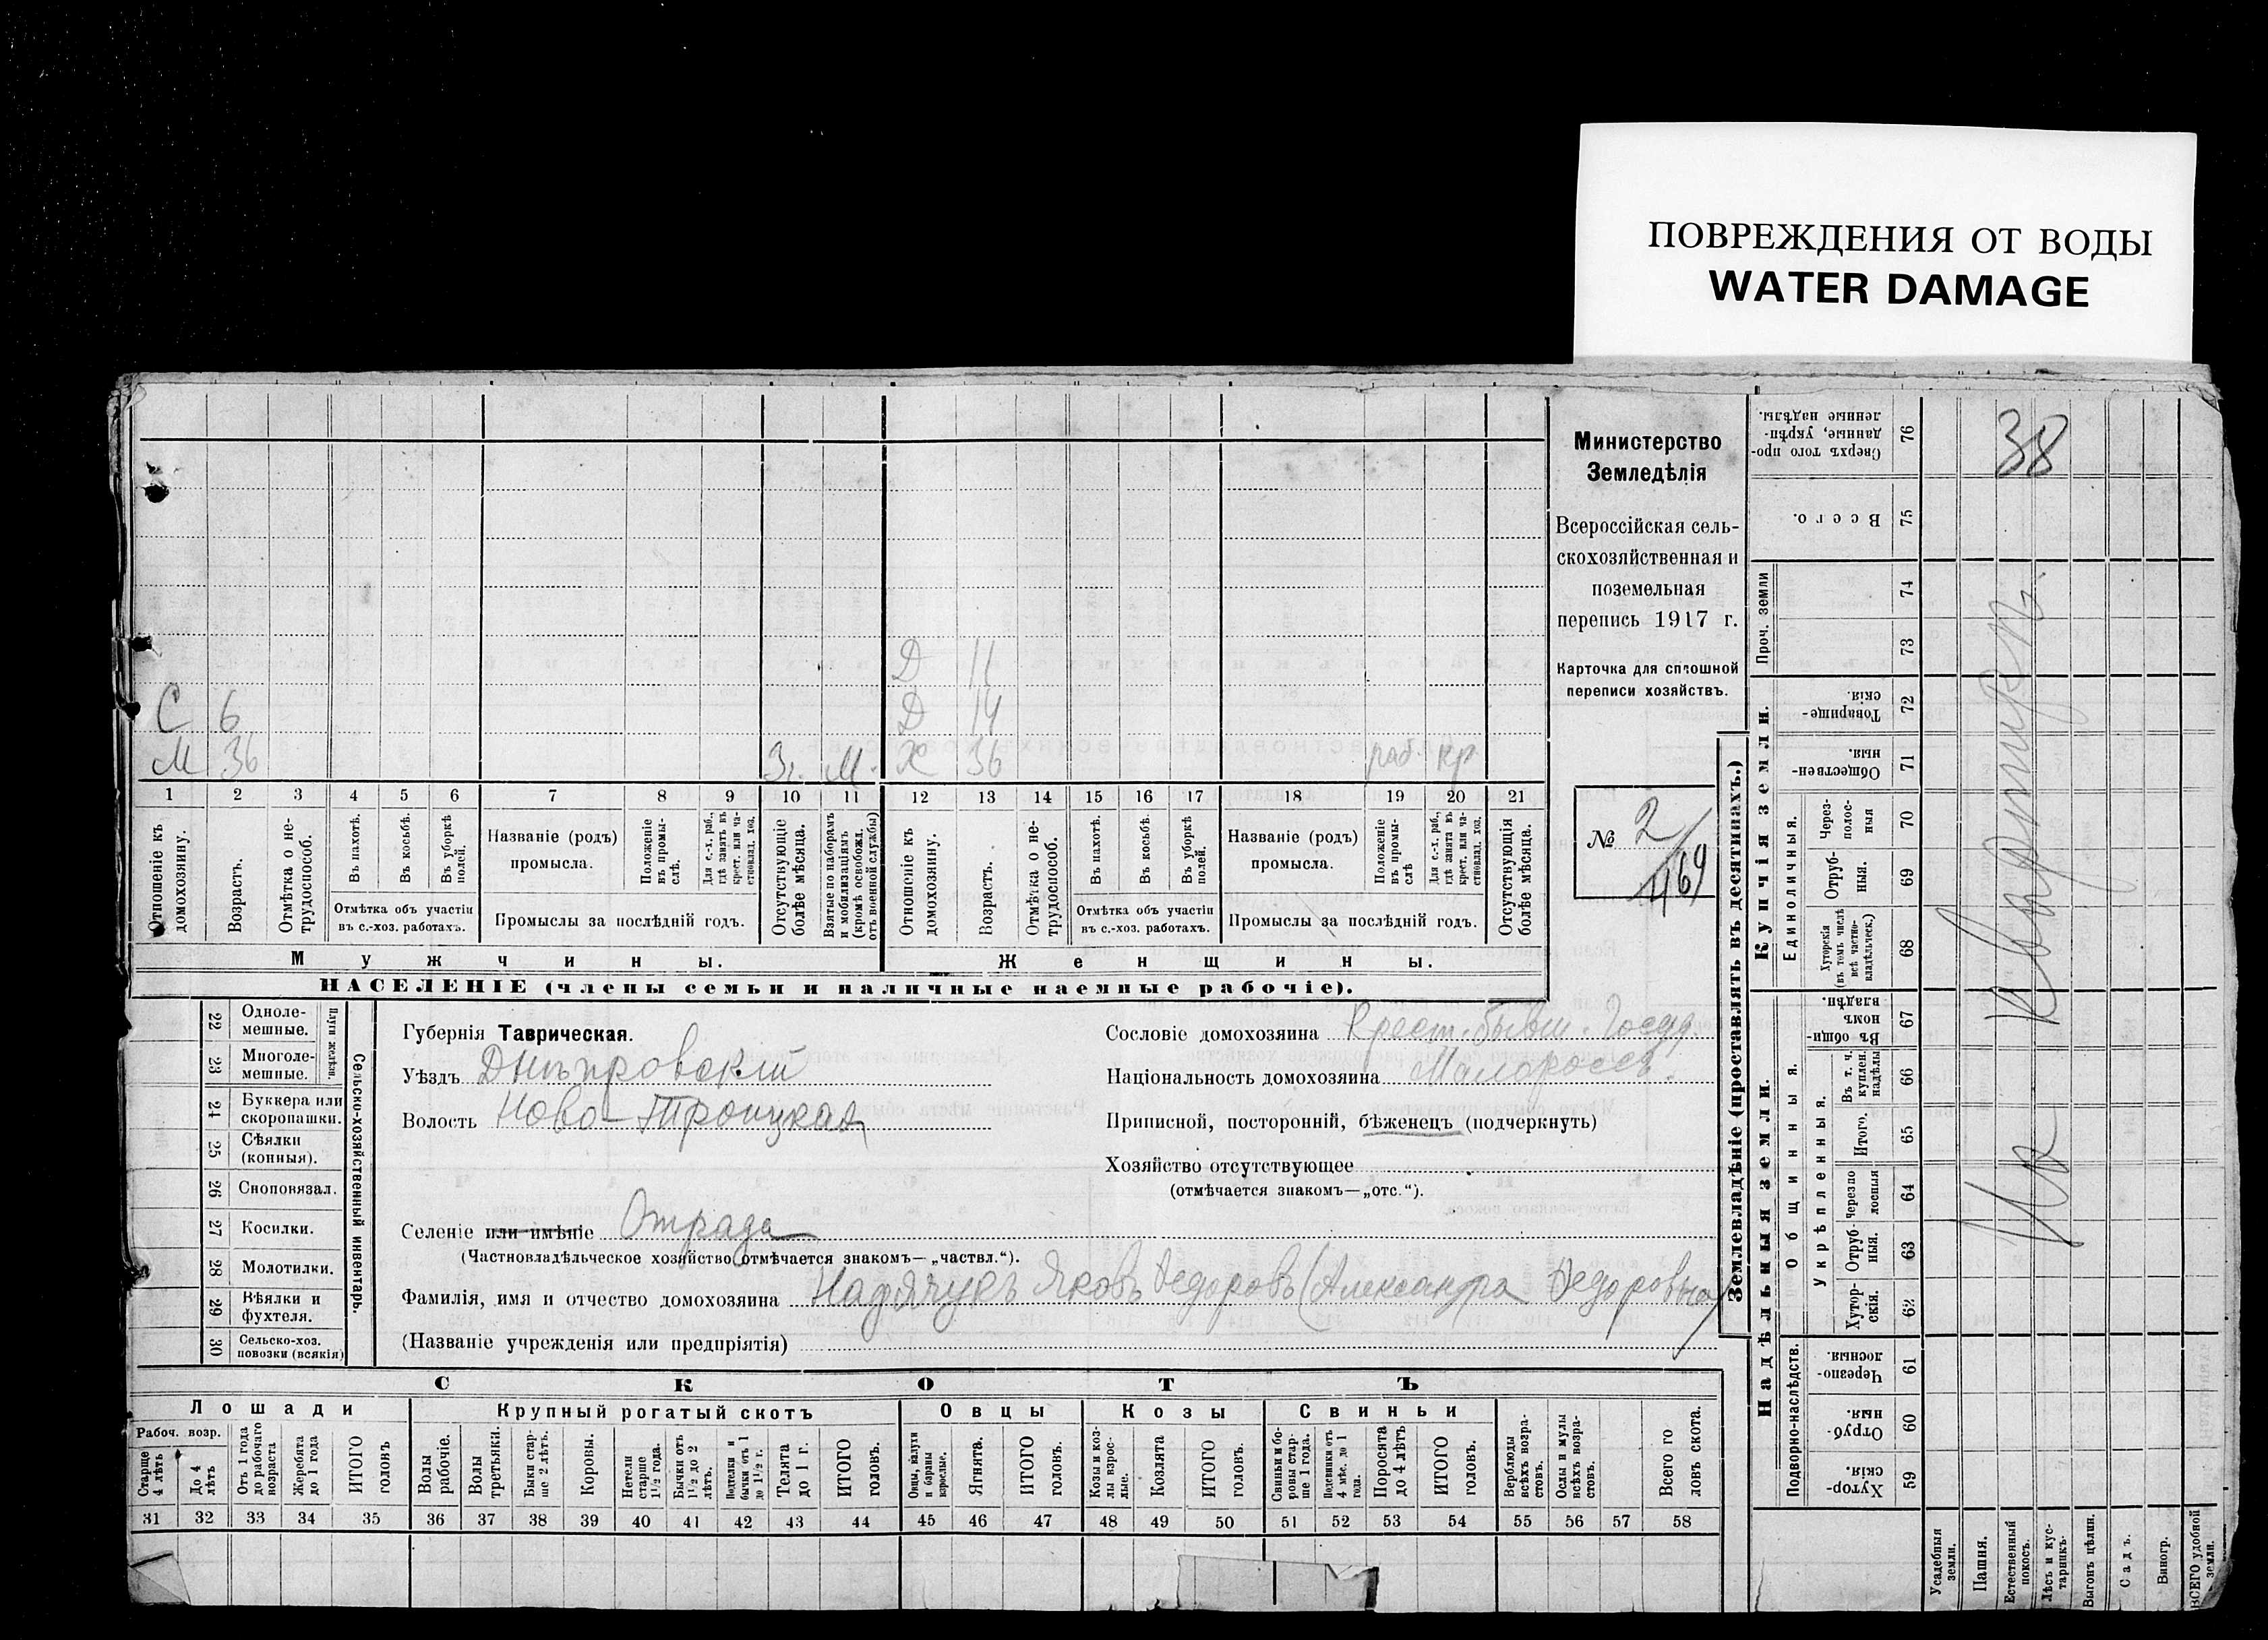 ПОВРЕЖДЕНИЯ ОТ ВОДЫ
WATER DAMAGE
Министерство
Земледѣлія
Всероссійская сель-
скохозяйственная и
поземельная
перепись 1917 г.
Карточка для сплошной
переписи хозяйствъ.
№ 2/1169
Д 11
С 6 Д 14
М 36 З. М. Х 36 раб. кр
1 2 3 4 5 6 7 8 9 10 11 12 13 14 15 16 17 18 19 20 21
Отношеніе къ домохозяину.
Возрастъ.
Отмѣтка о не-трудоспособ.
Въ пахотѣ.
Въ косьбѣ.
Въ уборкѣ полей.
Отмѣтка объ участіи
въ с.-хоз. работахъ.
Названіе (родъ)
промысла.
Положеніе въ промы-слѣ.
Для с.-х. раб., гдѣ занятъ въ крест. или ча-стновлад. хоз.
Промыслы за послѣдній годъ.
Отсутствующіе болѣе мѣсяца.
Взятые по наборамъ и мобилизаціямъ (кромѣ освобожд. отъ военной службы)
Отношеніе къ домохозяину.
Возрастъ.
Отмѣтка о не-трудоспособ.
Въ пахотѣ.
Въ косьбѣ.
Въ уборкѣ полей.
Отмѣтка объ участіи
въ с.-хоз. работахъ.
Названіе (родъ)
промысла.
Положеніе въ промы-слѣ
Для с.-х. раб., гдѣ занята въ крест. или ча-стновлад. хоз.
Промыслы за послѣдній годъ.
Отсутствующія болѣе мѣсяца.
Мужчины.
Женщины.
НАСЕЛЕНІЕ (члены семьи и наличные наемные рабочіе).
22 Одноле-мешные.
23 Многоле-мешные.
Плуги желѣзн.
24 Буккера или скоропашки.
25 Сѣялки (конныя).
26 Сноповязал.
27 Косилки.
28 Молотилки.
29 Вѣялки и фухтеля.
30 Сельско-хоз. повозки (всякія)
Сельско-хозяйственный инвентарь.
Губернія Таврическая.
Уѣздъ Днѣпровскій
Волость Ново-Троицкая
Селеніе или имѣніе Отрада
(Частновладѣльческое хозяйство отмѣчается знакомъ—„частвл.“).
Фамилія, имя и отчество домохозяина Надячукъ Яковъ Федоровъ (Александра Федоровна)
(Названіе учрежденія или предпріятія)
Сословіе домохозяина Крест. бывш. Госуд.
Національность домохозяина Малороссъ.
Приписной, посторонній, бѣженецъ (подчеркнуть)
Хозяйство отсутствующее
(отмѣчается знакомъ—„отс.“).
СКОТЪ
Лошади
Рабоч. возр.
Старше 4 лѣтъ
До 4 лѣтъ
Отъ 1 года до рабочаго возраста
Жеребята до 1 года
ИТОГО головъ
Крупный рогатый скотъ
Волы рабочіе.
Волы третьяки.
Быки стар-ше 2 лѣтъ.
Коровы.
Нетели старше 1½ года.
Бычки отъ 1½ до 2 лѣтъ.
Телята до 1 г.
ИТОГО головъ.
Овцы
Овцы, валухи и бараны взрослые.
Ягнята.
ИТОГО головъ.
Козы
Козы и коз-лы взрос-лые.
Козлята
ИТОГО головъ.
Свиньи
Свиньи и бо-ровы стар-ше 1 года.
Подсвинки отъ 4 мѣс. до 1 года.
Поросята до 4 лѣтъ
ИТОГО головъ.
Верблюды всѣхъ возра-стовъ.
Ослы и мулы всѣхъ возра-стовъ.
Всего го-ловъ скота.
31 32 33 34 35 36 37 38 39 40 41 42 43 44 45 46 47 48 49 50 51 52 53 54 55 56 57 58
Землевладѣніе (проставлять въ десятинахъ.)
Надѣльныя земли.
Купчія земли.
Проч. земли
Подворно-наслѣдств.
Общинныя.
Укрѣпленныя.
Единоличныя.
Сверхъ того про-данные, укрѣп-ленные надѣлы. 76
Всего. 75
74
73
Товарище-скія. 72
Обществен-ныя 71
Через-полос-ныя 70
Отруб-ныя. 69
Хуторскія (въ томъ числѣ всѣ частно-владѣльческ.) 68
Въ общин-номъ владѣн. 67
Въ т. ч. куплен. надѣлы 66
Итого. 65
Черезпо-лосныя 64
Отруб-ныя. 63
Хутор-скія. 62
Черезпо-лосныя. 61
Отруб-ныя. 60
Хутор-скія 59
Усадебныя земли.
Пашня.
Естественный покосъ.
Лѣсъ и кус-тарникъ.
Выгонъ цѣлин.
Садъ.
Виногр.
ВСЕГО удобной земли.
38
На квартирѣ.